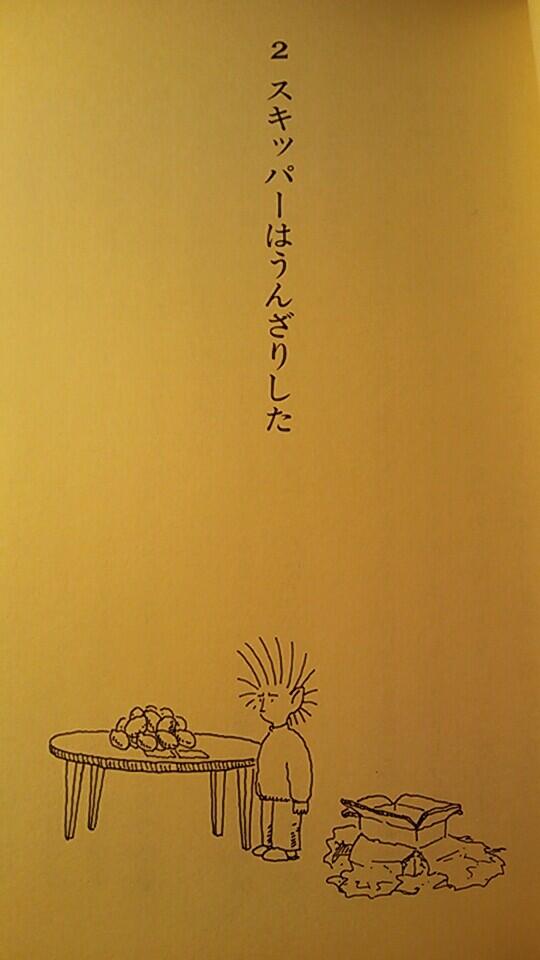 2 スキッパーはうんざりした